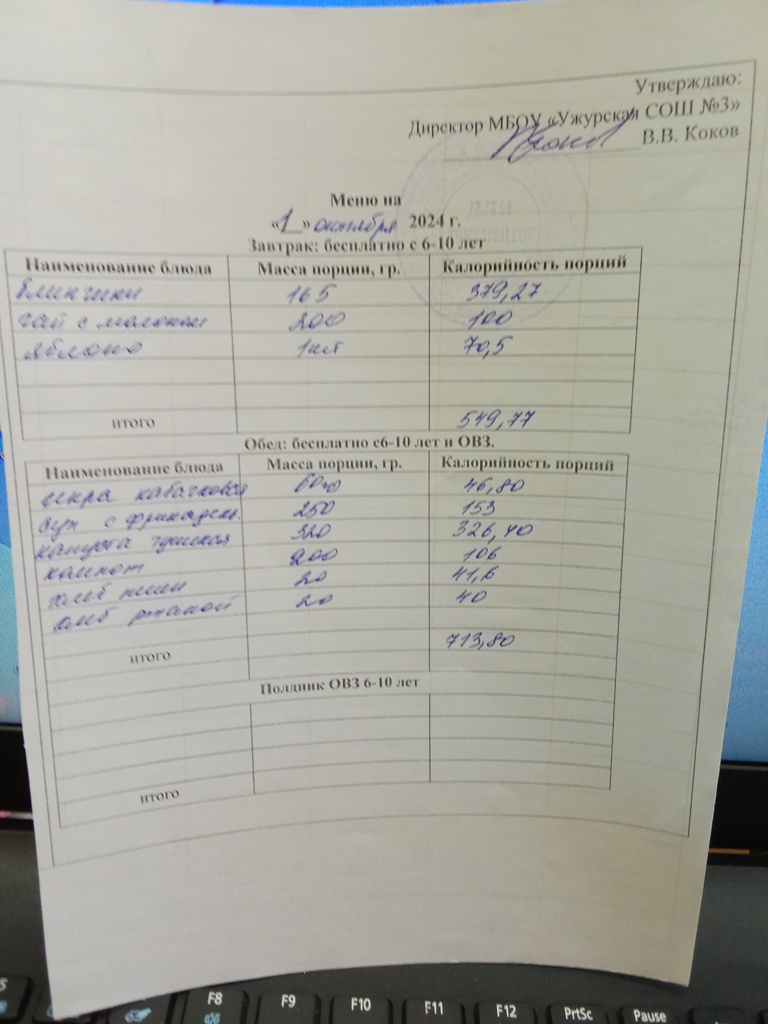 Утверждаю:
Директор МБОУ «Ужурская СОШ №3»
В.В. Коков
Меню на
«1» октября 2024 г.
Завтрак: бесплатно с 6-10 лет
Наименование блюда Масса порции, гр. Калорийность порций
блинчики 165 379,27
чай с молоком 200 100
яблоко 1шт 70,5
итого 549,77
Обед: бесплатно с6-10 лет и ОВЗ.
Наименование блюда Масса порции, гр. Калорийность порций
икра кабачковая 60 46,80
суп с фрикадель. 250 153
капуста тушеная 320 326,40
компот 200 106
хлеб пшен 20 41,6
хлеб ржаной 20 40
итого 713,80
Полдник ОВЗ 6-10 лет
итого
F8 F9 F10 F11 F12 PrtSc Pause